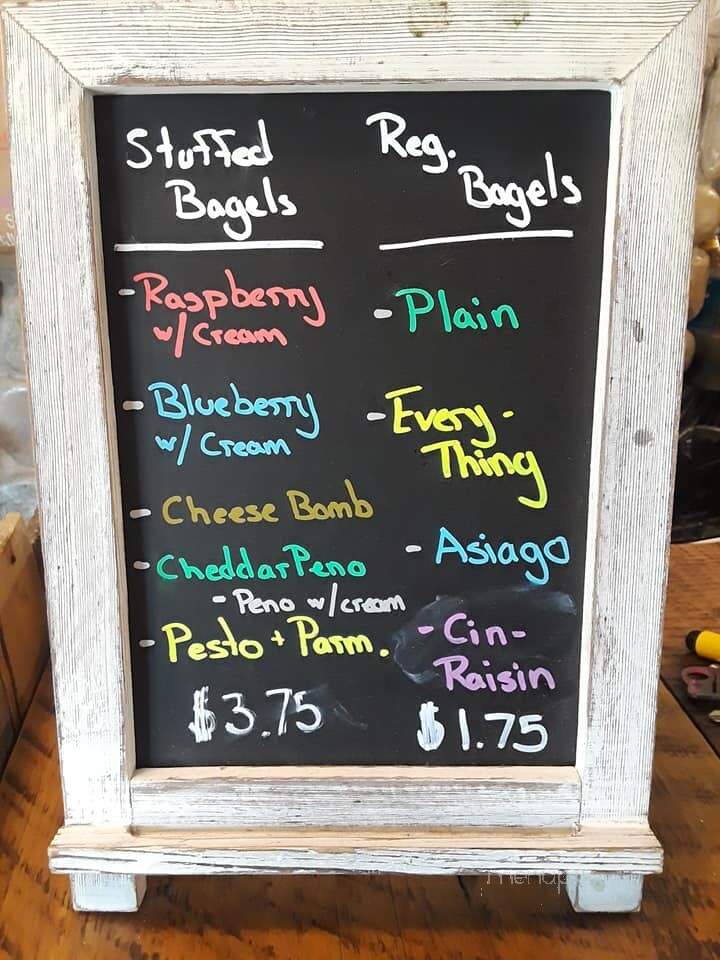 Stuffed
Bagels
- Raspberry
w/ Cream
- Blueberry
w/ Cream
- Cheese Bomb
- CheddarPeno
- Peno w/cream
- Pesto + Parm.
$3.75
Reg.
Bagels
- Plain
- Every-
Thing
- Asiago
- Cin-
Raisin
$1.75